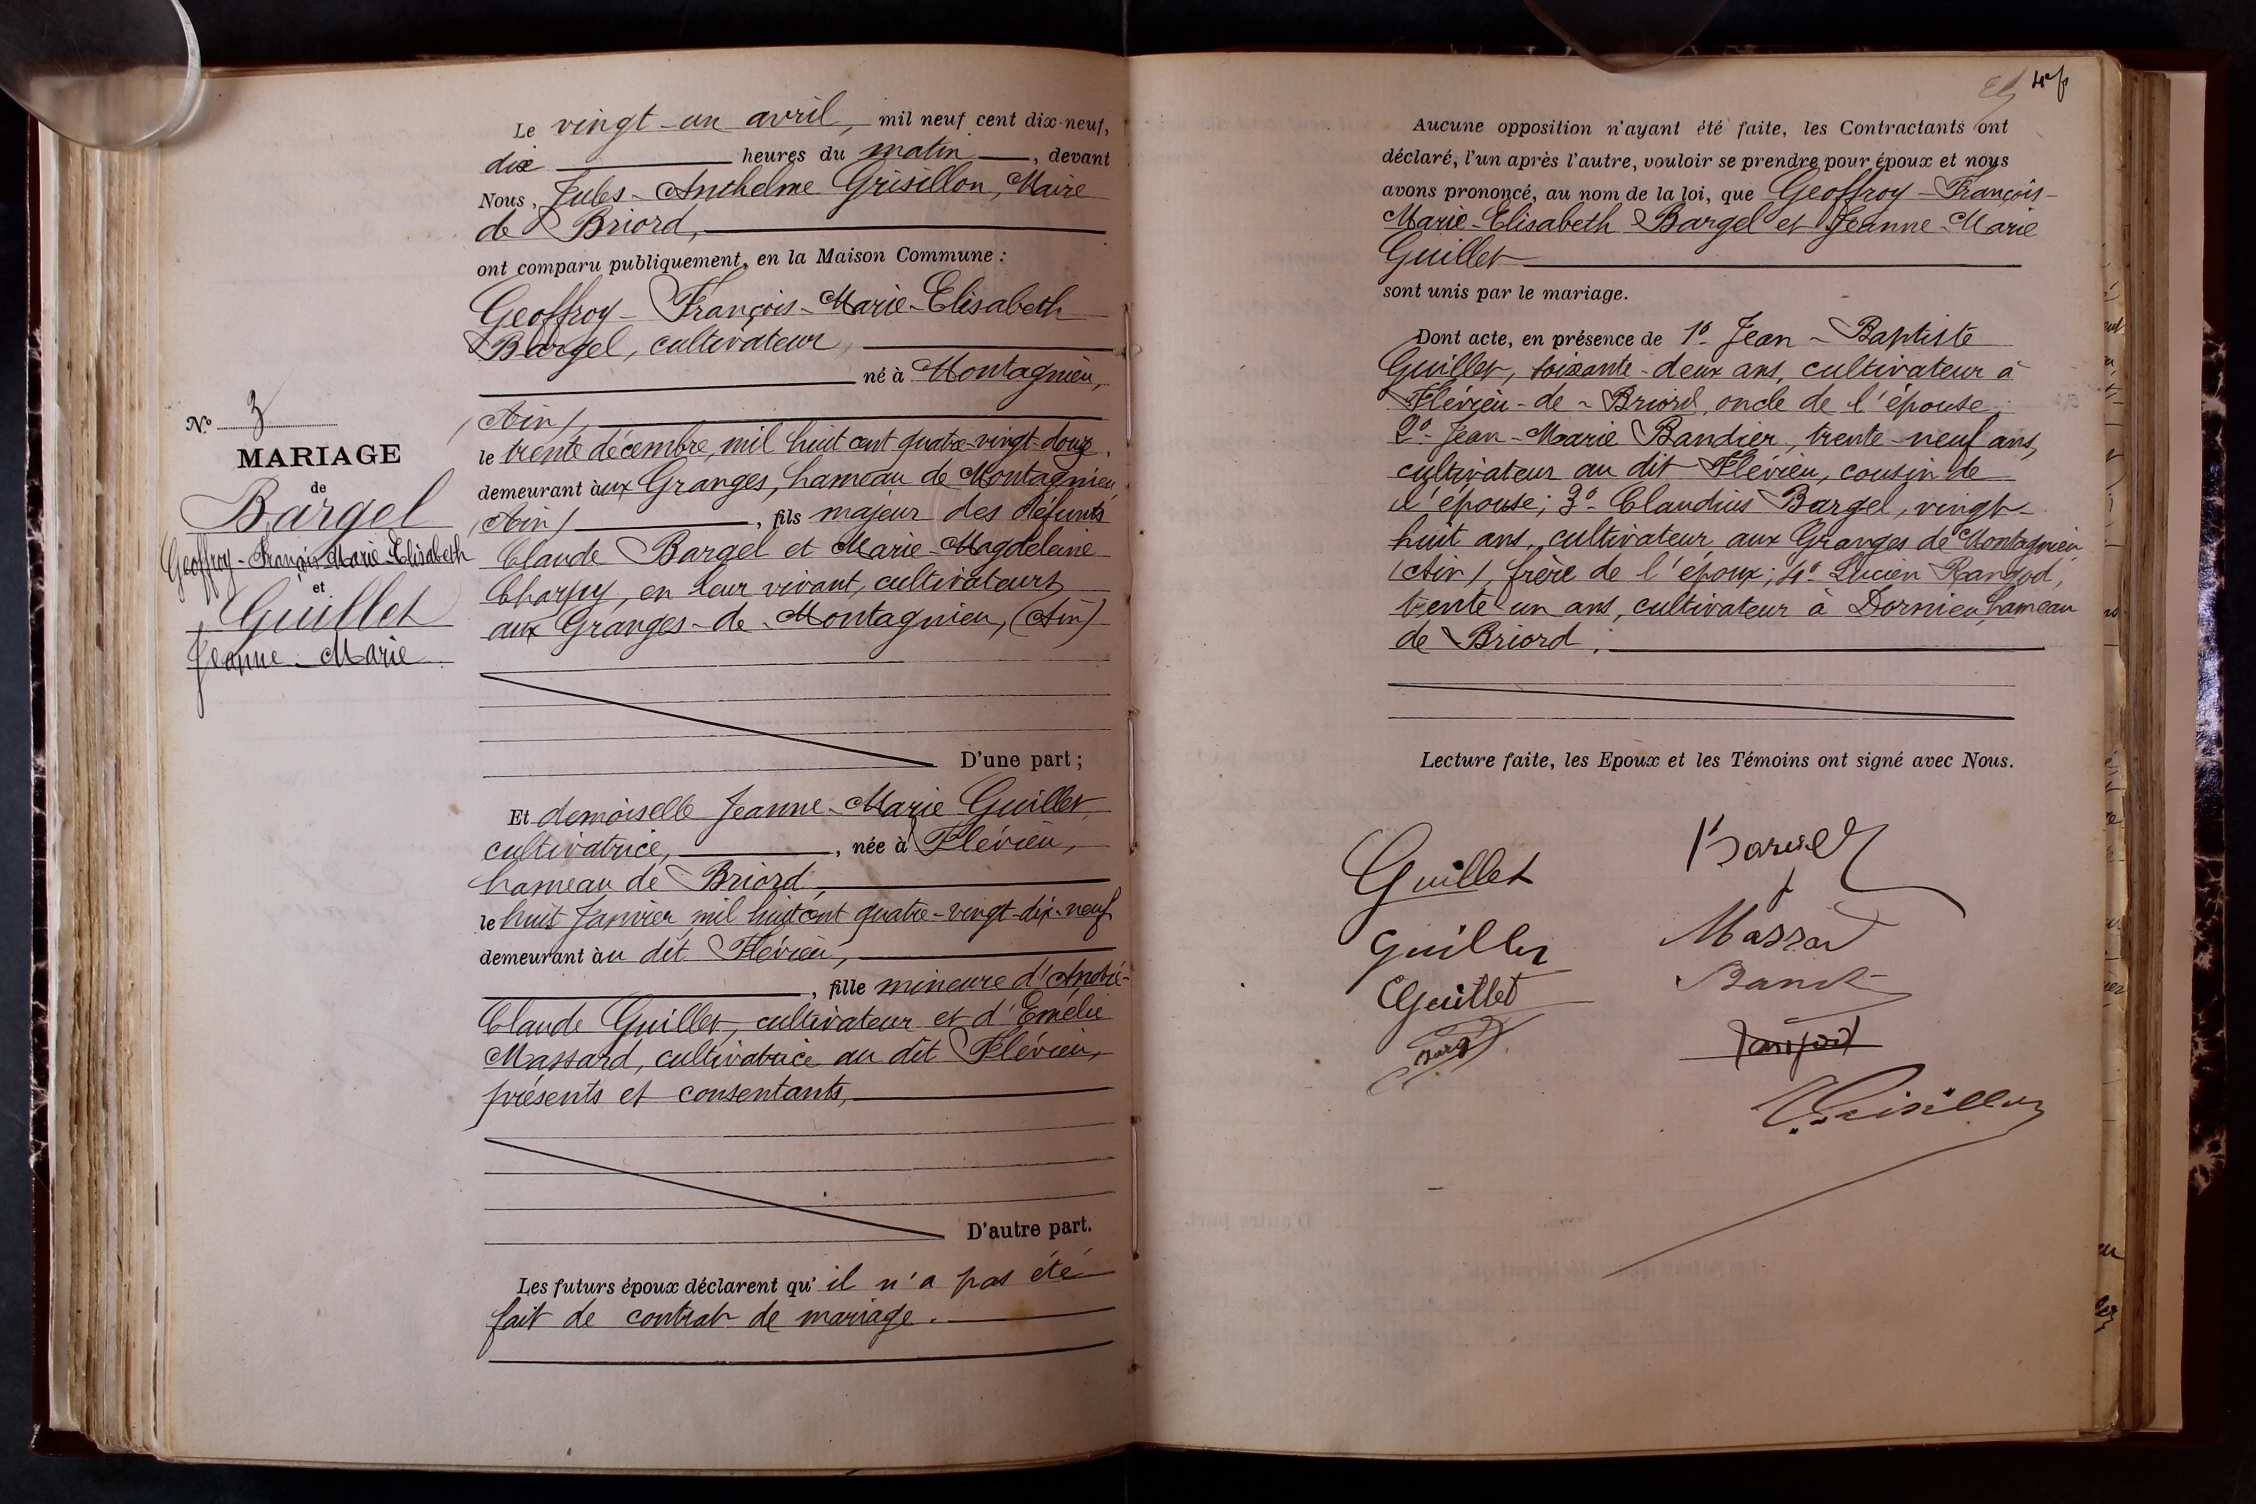 Le vingt-un avril, mil neuf cent dix-neuf,
dix heures du matin, devant
Nous, Jules-Anthelme Grisillon, Maire
de Briord,
ont comparu publiquement, en la Maison Commune :
Geoffroy-François-Marie-Elisabeth
Bargel, cultivateur,
né à Montagnieu,
(Ain),
le trente décembre, mil huit cent quatre-vingt-douze,
demeurant aux Granges, hameau de Montagnieu
(Ain), fils majeur des défunts
Claude Bargel et Marie-Magdeleine
Charpy, en leur vivant, cultivateurs
aux Granges-de-Montagnieu, (Ain)
D'une part ;
Et demoiselle Jeanne-Marie Guillet,
cultivatrice, née à Flévieu,
hameau de Briord,
le huit Janvier mil huit cent quatre-vingt-dix-neuf
demeurant au dit Flévieu,
, fille mineure d'André-
Claude Guillet, cultivateur et d'Emélie
Massard, cultivatrice au dit Flévieu,
présents et consentants,
D'autre part.
Les futurs époux déclarent qu'il n'a pas été
fait de contrat de mariage.
N.º 3
MARIAGE
de
Bargel
Geoffroy-François-Marie-Elisabeth
et
Guillet
Jeanne-Marie
Aucune opposition n'ayant été faite, les Contractants ont
déclaré, l'un après l'autre, vouloir se prendre pour époux et nous
avons prononcé, au nom de la loi, que Geoffroy-François-
Marie-Elisabeth Bargel et Jeanne-Marie
Guillet
sont unis par le mariage.
Dont acte, en présence de 1º Jean-Baptiste
Guillet, soixante-deux ans, cultivateur à
Flévieu-de-Briord, oncle de l'épouse;
2º Jean-Marie Bandier, trente-neuf ans,
cultivateur au dit Flévieu, cousin de
l'épouse; 3º Claudius Bargel, vingt-
huit ans, cultivateur aux Granges de Montagnieu
(Ain), frère de l'époux; 4º Lucien Rangod,
trente un ans, cultivateur à Dornieu, hameau
de Briord.
Lecture faite, les Epoux et les Témoins ont signé avec Nous.
Guillet
Bargel
Guillet
Massard
Guillet
Grisillon